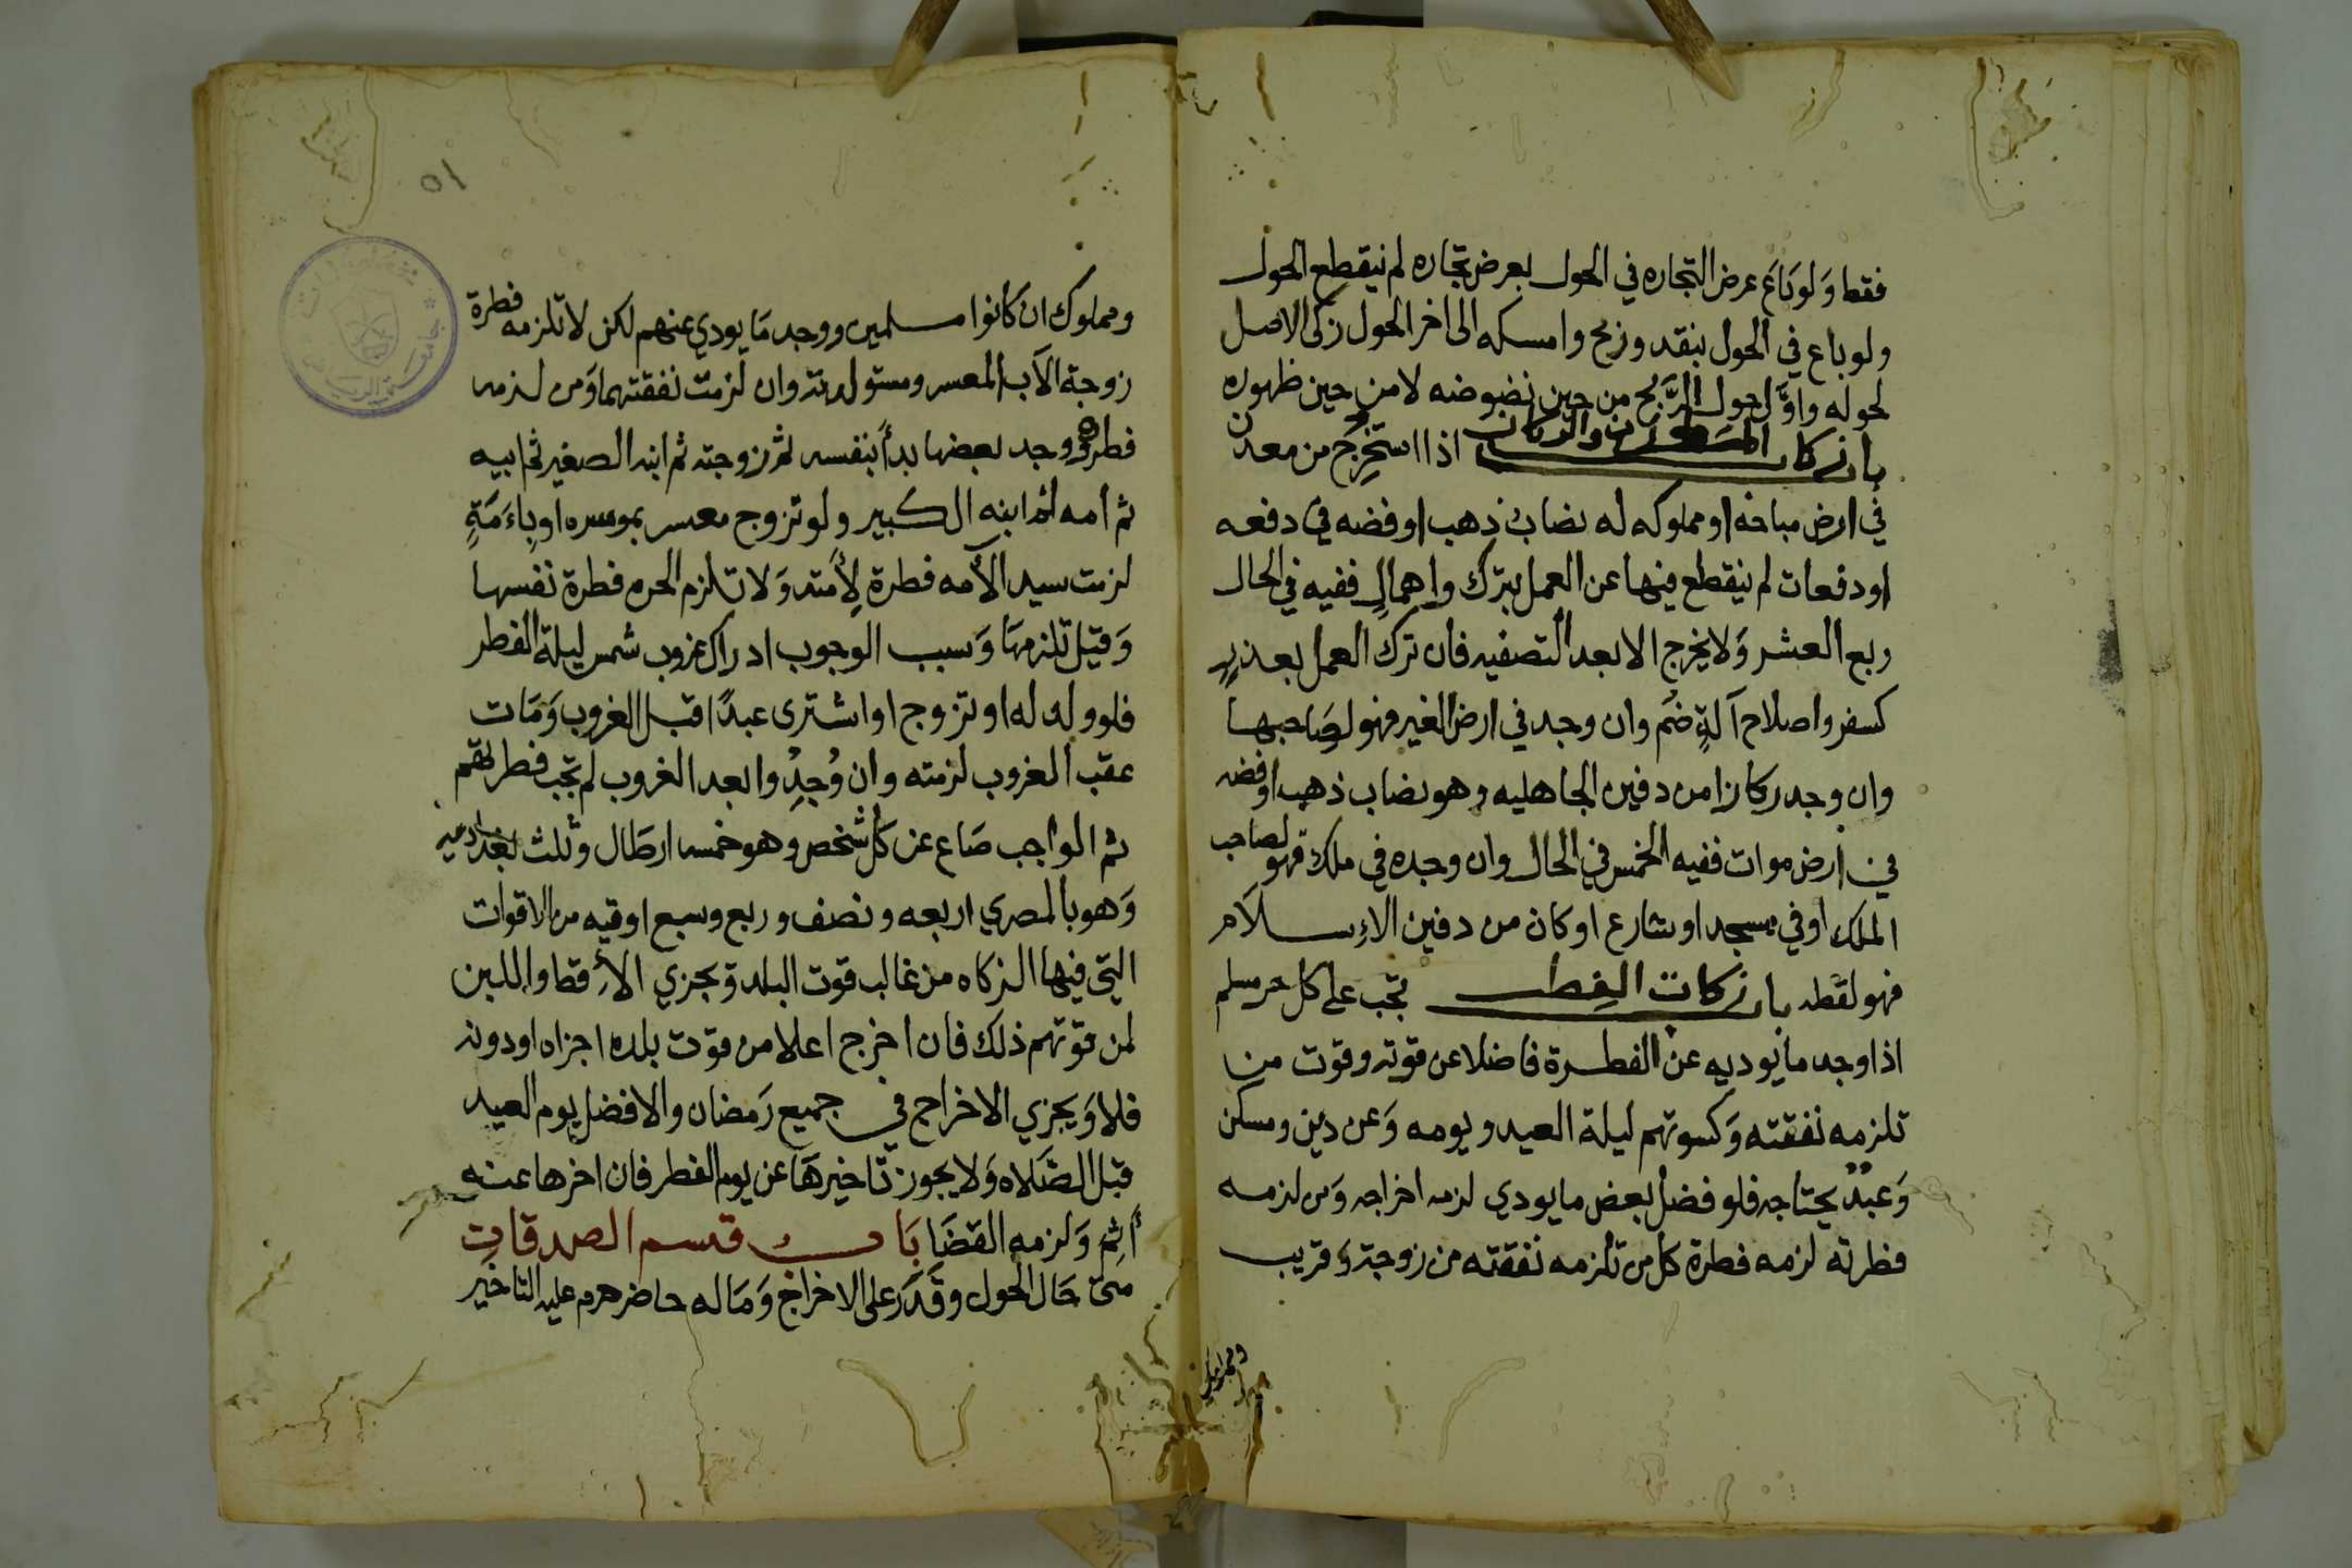 فقط وَلو بَاعَ عرض التجاره في الحول بعرض تجاره لم ينقطع الحول
ولو باع في الحول بنقد وربح وامسكه الى اخر الحول زكى الاصل
لحوله واوَّل حول الرَّبح من حين نضوضه لا من حين ظهوره
باب زكاة المعدن والركاز اذا استخرج من معدن
في ارض مباحه او مملوكه له نصاب ذهب او فضه في دفعه
او دفعات لم ينقطع فيها عن العمل بترك واهمالٍ ففيه في الحال
ربع العشر وَلا يخرج الا بعد التصفيه فان ترك العمل بعذرٍ
كسفر واصلاح آلةٍ ضم وان وجد في ارض الغير فهو لصَاحبها
وان وجد ركازا من دفين الجاهليه وهو نصاب ذهب او فضه
في ارض موات ففيه الخمس في الحال وان وجده في ملك فهو لصاحب
الملك او في مسجد او شارع او كان من دفين الاِسلام
فهو لقطه باب زكات الفِطر تجب على كل حر مسلم
اذا وجد ما يوديه عن الفطرة فاضلا عن قوته وقوت من
تلزمه نفقته وَكسوتهم ليلة العيد ويومه وَعن دين ومسكن
وَعبدٌ يحتاجه فلو فضل بعض ما يودي لزمه اخراجه وَمن لزمه
فطرته لزمه فطرة كل من تلزمه نفقته من زوجة وَقريب
ومملوك
٥١
ومملوك ان كانوا مسلمين ووجد مَا يودي عنهم لكن لا تلزمه فطرة
زوجة الاَب المعسر ومستولدته وان لزمت نفقتهما وَمن لزمه
فطرة ووجد بعضها بدأ بنفسه ثم زوجته ثم ابنه الصغير ثم ابيه
ثم امه ثم ابنه الكبير ولو تزوج معسر بموسره او باَمَةٍ
لزمت سيد الاَمه فطرة لاِمته وَلا تلزم الحره فطرة نفسها
وَقيل تلزمهَا وَسبب الوجوب ادراك غروب شمس ليلة الفطر
فلو ولد له او تزوج او اشترى عبدًا قبل الغروب وَمَات
عقب الغروب لزمته وان وُجِدُوا بعد الغروب لم تجب فطرتهم
ثم الواجب صَاع عن كل شخص وهو خمسه ارطَال وثلث بغداديه
وَهو بالمصري اربعه ونصف وربع وسبع اوقيه من الاقوات
التي فيها الزكاه من غالب قوت البلد وَيجزي الأقط واللبن
لمن قوتهم ذلك فان اخرج اعلا من قوت بلده اجزاه او دونه
فلا وَيجزي الاخراج في جميع رَمضان والافضل يوم العيد
قبل الصَّلاه وَلا يجوز تاخيرهَا عن يوم الفطر فان اخرها عنه
أثم وَلزمه القضَا بَاب قسم الصدقات
متى حَال الحول وقَدَر على الاخراج وَمَاله حاضر حرم عليه التاخير